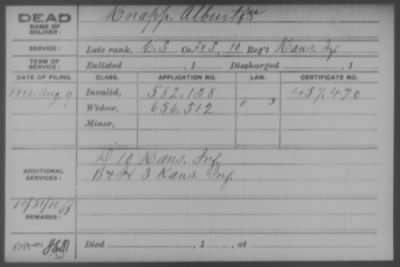 DEAD
NAME OF SOLDIER:
Knapp, Albur
SERVICE:
Late rank, C.S. Co. F&S, 10 Reg't Kans. Inf
TERM OF SERVICE:
Enlisted , 1 Discharged , 1
DATE OF FILING. CLASS. APPLICATION NO. LAW. CERTIFICATE NO.
Aug. 9 Invalid, 582,138 457,470
Widow, 656,512
Minor,
ADDITIONAL SERVICES:
D 10 Kans. Inf
3 Kans. Inf.
REMARKS:
Died , 1 , at